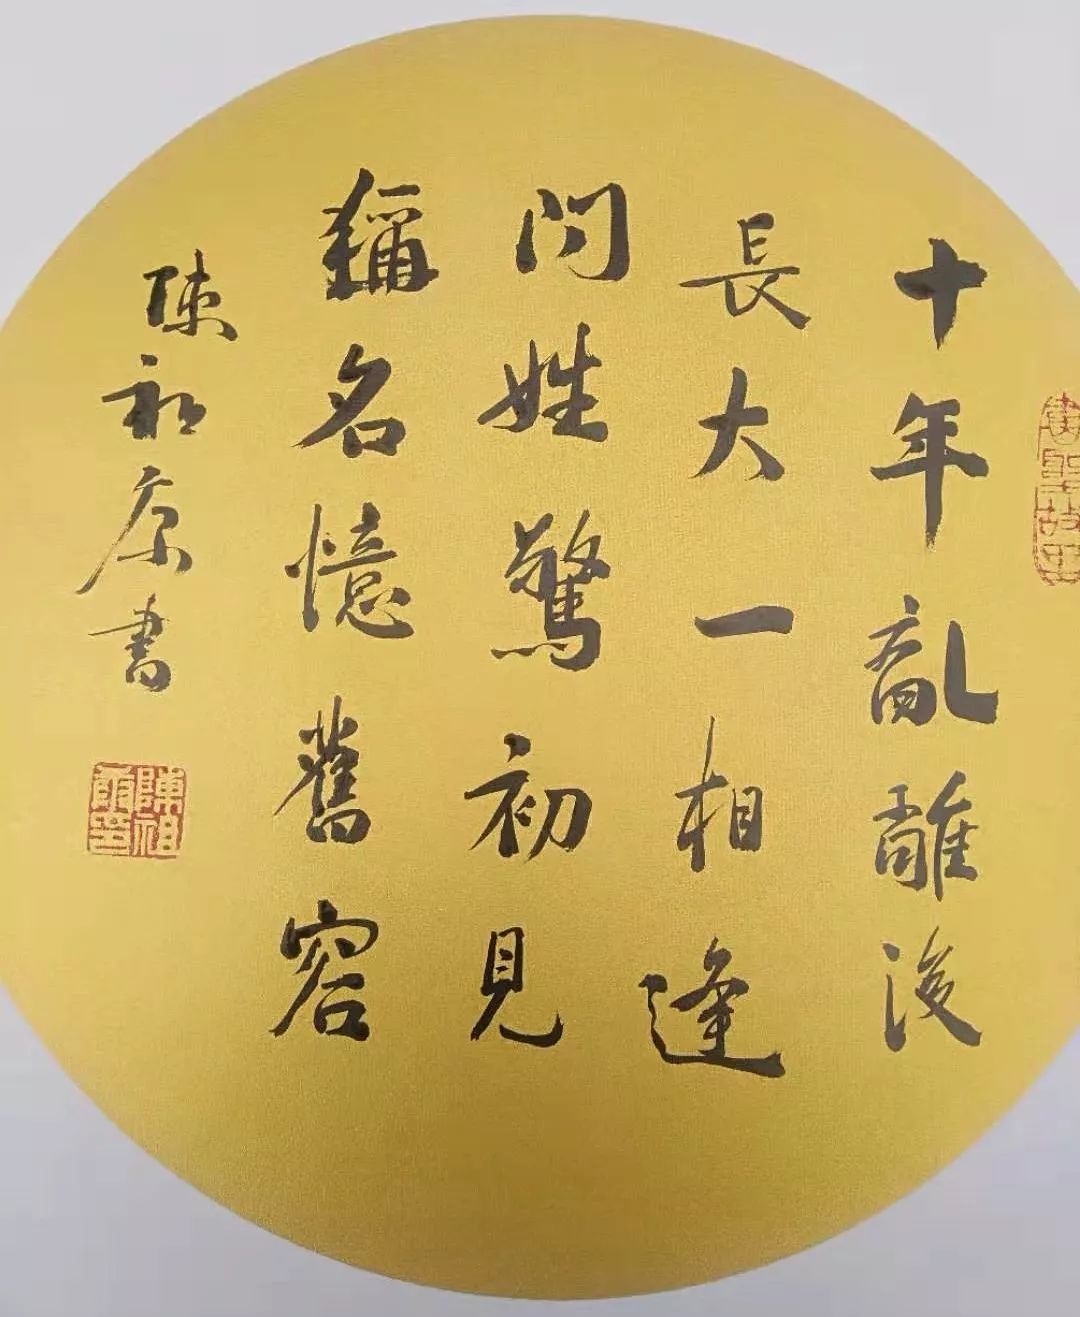 十年亂離後
長大一相逢
問姓驚初見
稱名憶舊容
陳祖康書
陳祖